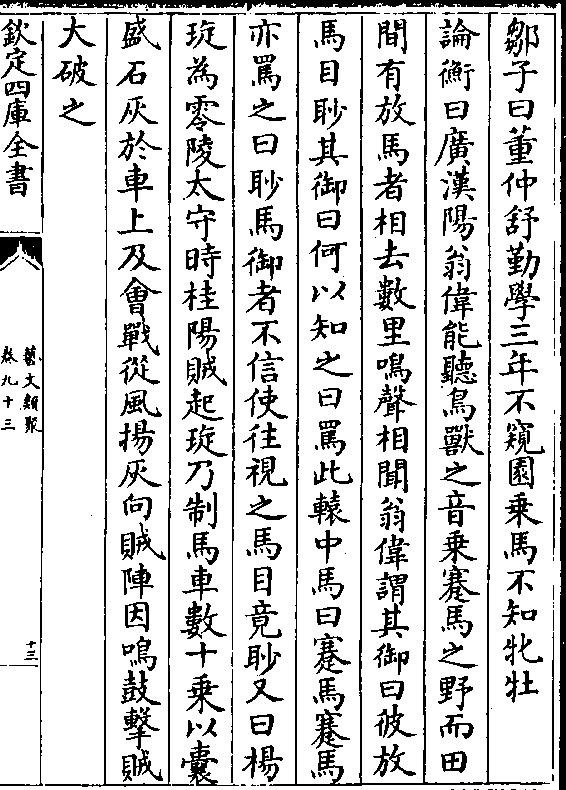 鄒子曰董仲舒勤學三年不窺園乗馬不知牝牡
論衡曰廣漢陽翁偉能聽鳥獸之音乗蹇馬之野而田
間有放馬者相去數里鳴聲相聞翁偉謂其御曰彼放
馬目眇其御曰何以知之曰罵此轅中馬曰蹇馬蹇馬
亦罵之曰眇馬御者不信使往視之馬目竟眇又曰楊
琁為零陵太守時桂陽賊起琁乃制馬車數十乗以囊
盛石灰於車上及會戰從風揚灰向賊陣因鳴鼓擊賊
大破之
欽定四庫全書
藝文類聚
卷九十三
十三